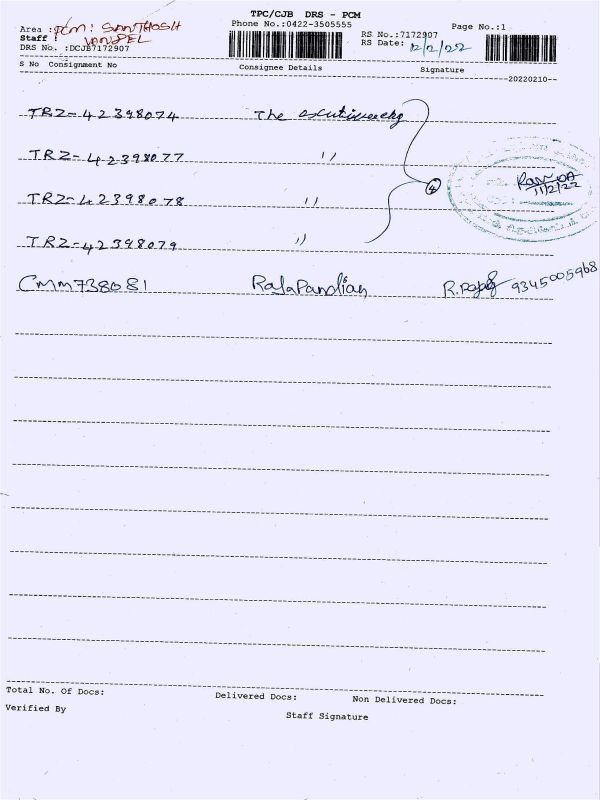 TPC/CJB DRS - PCM
Phone No.:0422-3505555
Page No.:1
Area : PCM: SANTHOSH
Staff : VANSPEL
DRS No. :DCJB7172907
RS No.:7172907
RS Date: 12/2/22
S No Consignment No Consignee Details Signature
20220210
TRZ-42398074 The
TRZ-42398077 〃
TRZ-42398078 〃
TRZ-42398079 〃
4
11/2/22
CMM738081 RajaPandian R.Raja 9345005968
Total No. Of Docs: Delivered Docs: Non Delivered Docs:
Verified By Staff Signature